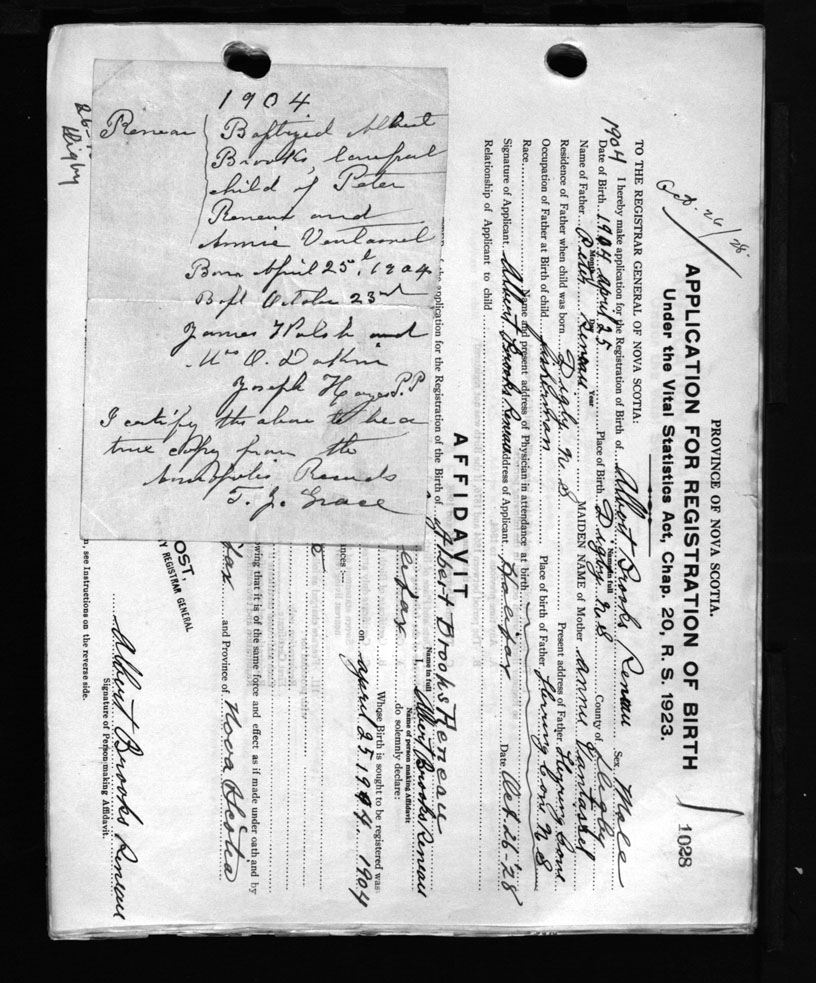 PROVINCE OF NOVA SCOTIA.
APPLICATION FOR REGISTRATION OF BIRTH
1028
Under the Vital Statistics Act, Chap. 20, R. S. 1923.
Oct. 26/28.
TO THE REGISTRAR GENERAL OF NOVA SCOTIA:
1904
I hereby make application for the Registration of Birth of Albert Brooks Reneau Sex Male
Name in full
Date of Birth 1904 April 25 Place of Birth Digby N S County of Digby
Month Day Year
Name of Father Peter Reneau MAIDEN NAME of Mother Annie Vantassel
Residence of Father when child was born Digby N S Present address of Father
Occupation of Father at Birth of child fisherman Place of birth of Father N S
Race Name and present address of Physician in attendance at birth
Signature of Applicant Albert Brooks Reneau Address of Applicant Halifax Date Oct 26-'28
Relationship of Applicant to child
AFFIDAVIT
of the application for the Registration of the Birth of Albert Brooks Reneau
Name in full
I, Albert Brooks Reneau
Name of person making Affidavit
do solemnly declare:
Whose Birth is sought to be registered was
on April 25 1904 1904
ances :—
owing that it is of the same force and effect as if made under oath and by
and Province of Nova Scotia
OST,
Y REGISTRAR GENERAL
Albert Brooks Reneau
Signature of Person making Affidavit.
n, see Instructions on the reverse side.
Digby
1904
Reneau Baptized Albert
Brooks, lawful
child of Peter
Reneau and
Annie Vantassel
Born April 25, 1904
Bapt October 23rd
James Walsh and
Mrs O. Dakin
Joseph Hayes P.P
I certify the above to be a
true copy from the
Annapolis Records
T. J. Grace